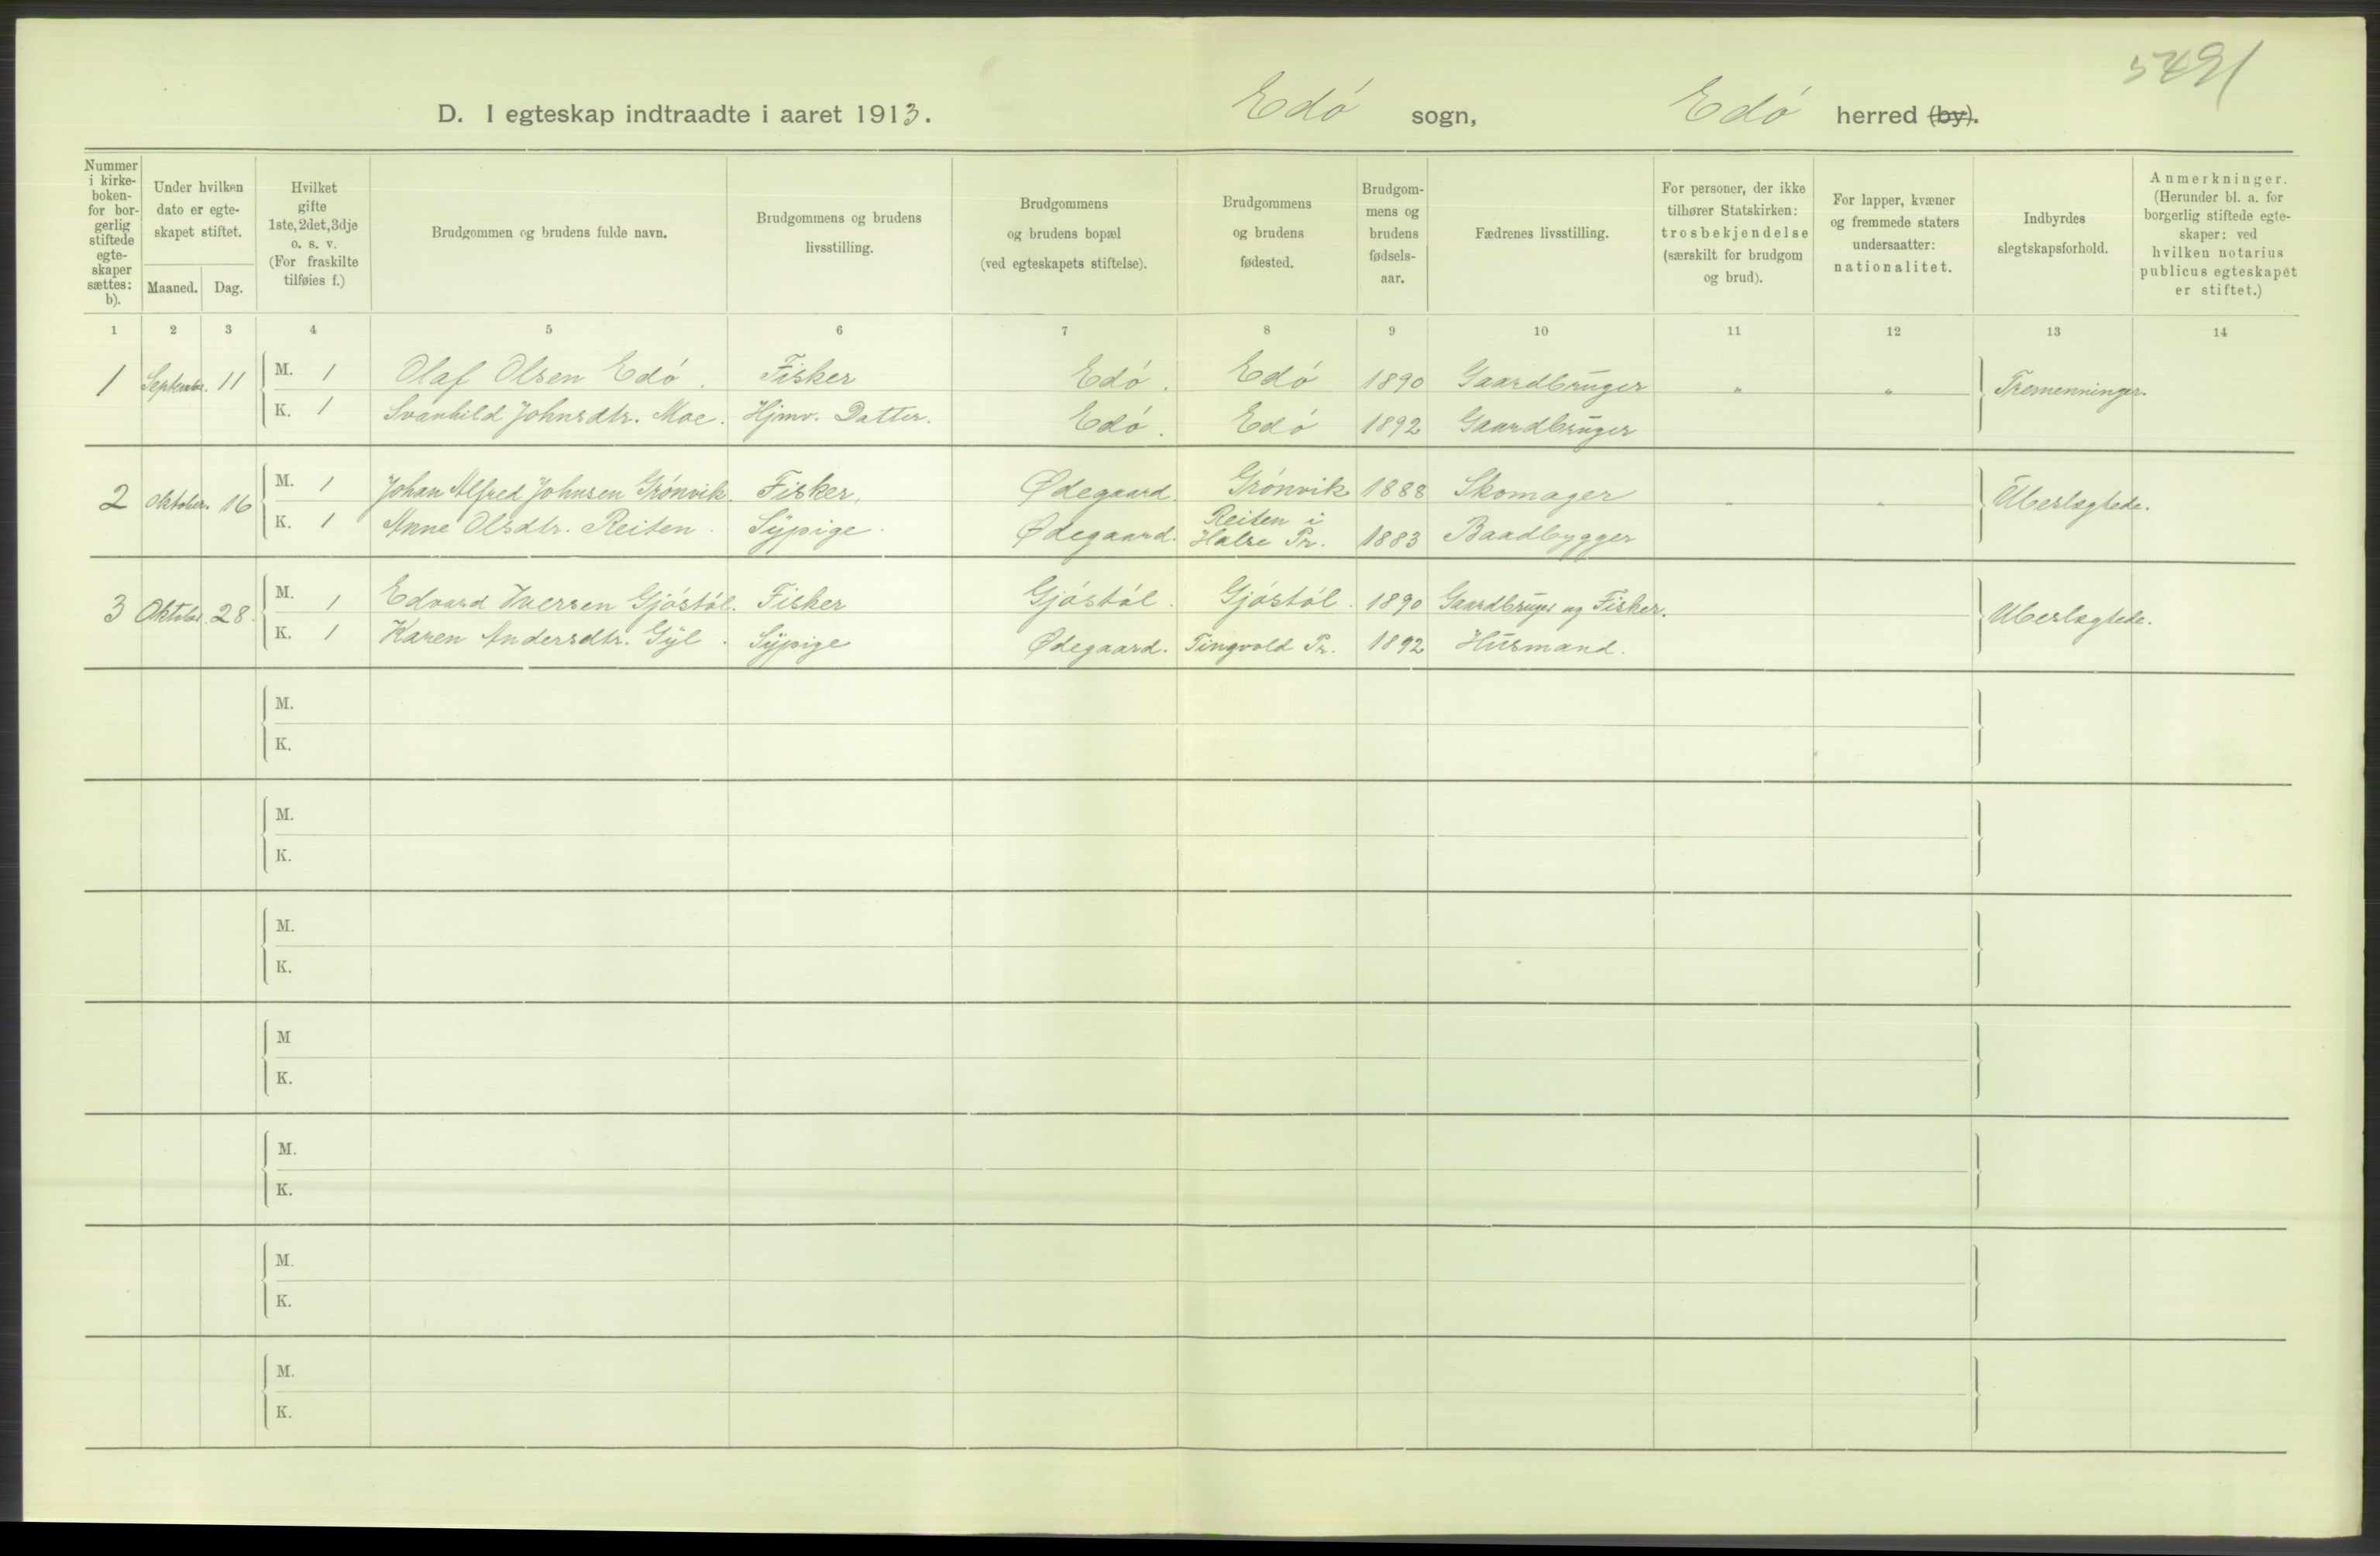 5491
D. I egteskap indtraadte i aaret 1913. Edó sogn, Edó herred (by).
Nummer i kirke-boken- for bor-gerlig stiftede egte-skaper sættes: b).
Under hvilken dato er egte-skapet stiftet.
Maaned. Dag.
Hvilket gifte 1ste, 2det, 3dje o. s. v. (For fraskilte tilføies f.)
Brudgommen og brudens fulde navn.
Brudgommens og brudens livsstilling.
Brudgommens og brudens bopæl (ved egteskapets stiftelse).
Brudgommens og brudens fødested.
Brudgom-mens og brudens fødsels-aar.
Fædrenes livsstilling.
For personer, der ikke tilhører Statskirken: trosbekjendelse (særskilt for brudgom og brud).
For lapper, kvæner og fremmede staters undersaatter: nationalitet.
Indbyrdes slegtskapsforhold.
Anmerkninger. (Herunder bl. a. for borgerlig stiftede egte-skaper: ved hvilken notarius publicus egteskapet er stiftet.)
1 2 3 4 5 6 7 8 9 10 11 12 13 14
1 September. 11 M. 1 Olaf Olsen Edó. Fisker Edó. Edó 1890 Gaardbruger " " Tremenninger.
K. 1 Svanhild Johnsdtr. Moe. Hjmv. Datter. Edó. Edó 1892 Gaardbruger
2 Oktober. 16 M. 1 Johan Alfred Johnsen Grónvik. Fisker. Ødegaard. Grónvik 1888 Skomager " " Ubeslægtede.
K. 1 Anne Olsdtr. Reiten. Sypige. Ødegaard. Reiten i Halse Pr. 1883 Baadbygger
3 Oktober 28. M. 1 Edvard Iversen Gjóstól. Fisker Gjóstól. Gjóstól. 1890 Gaardbruger og Fisker. Ubeslægtede.
K. 1 Karen Andersdtr. Gyl. Sypige Ødegaard. Tingvold Pr. 1892 Husmand.
M.
K.
M.
K.
M.
K.
M
K.
M.
K.
M.
K.
M.
K.